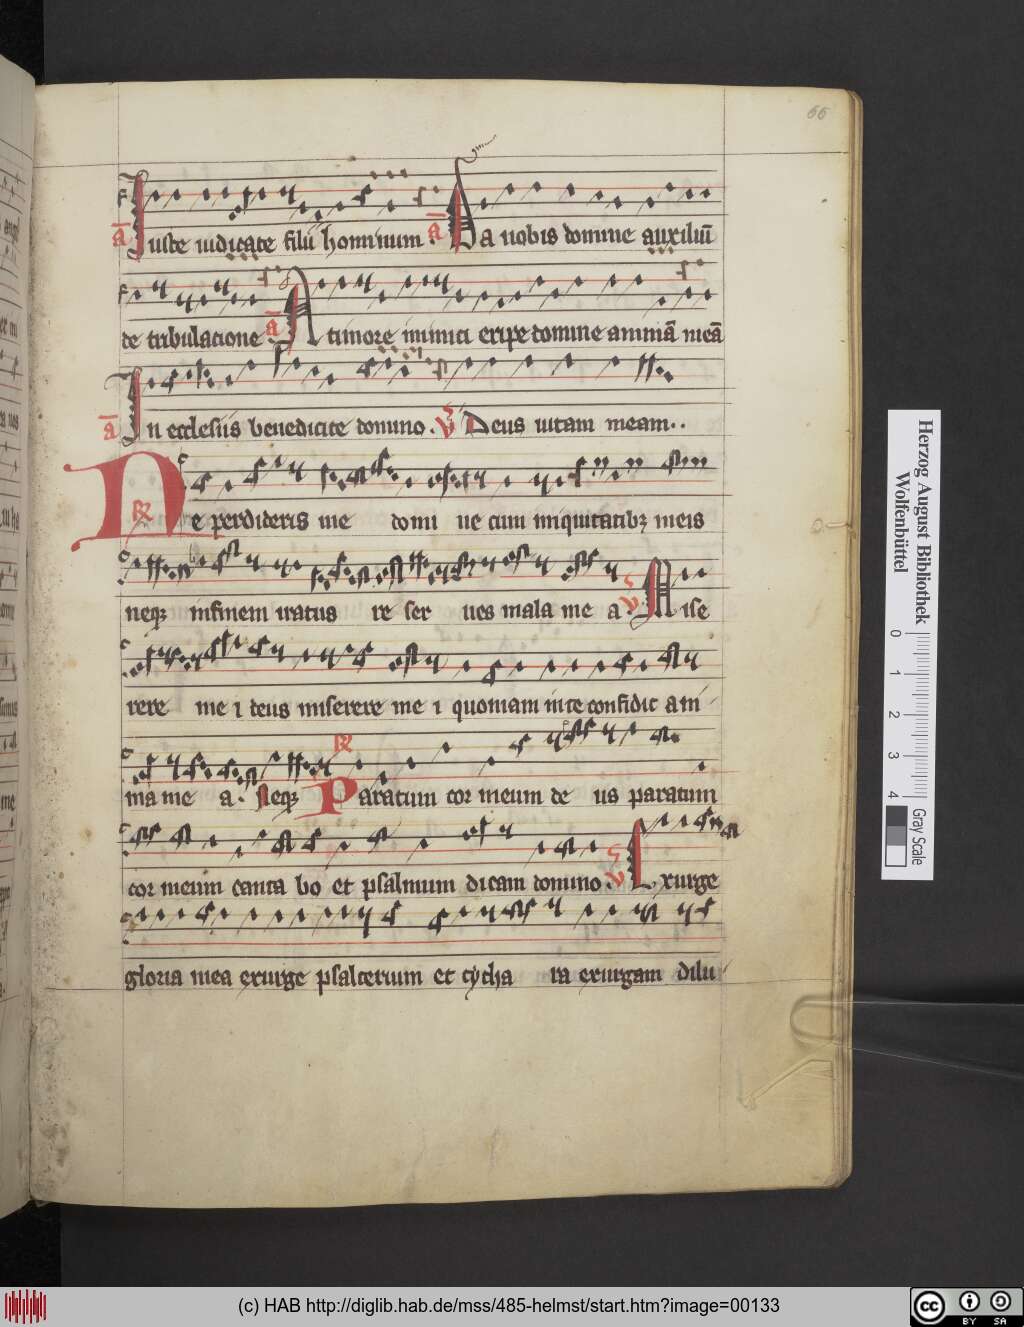 66
a Iuste iudicate filii hominum. a Da nobis domine auxiliū
de tribulacione a A timore inimici eripe domine animā meā
a In ecclesiis benedicite domino. V Deus uitam meam..
R Ne perdideris me domi ne cum iniquitatibꝫ meis
neqꝫ infinem iratus re ser ues mala me a. V Mise
rere me i deus miserere me i quoniam in te confidit am
ma me a. Neqꝫ R Paratum cor meum de us paratum
cor meum canta bo et psalmum dicam domino. V Exurge
gloria mea exurge psalterium et cytha ra exurgam dilu
Herzog August Bibliothek
Wolfenbüttel
0 1 2 3 4
Gray Scale
(c) HAB http://diglib.hab.de/mss/485-helmst/start.htm?image=00133
cc BY SA